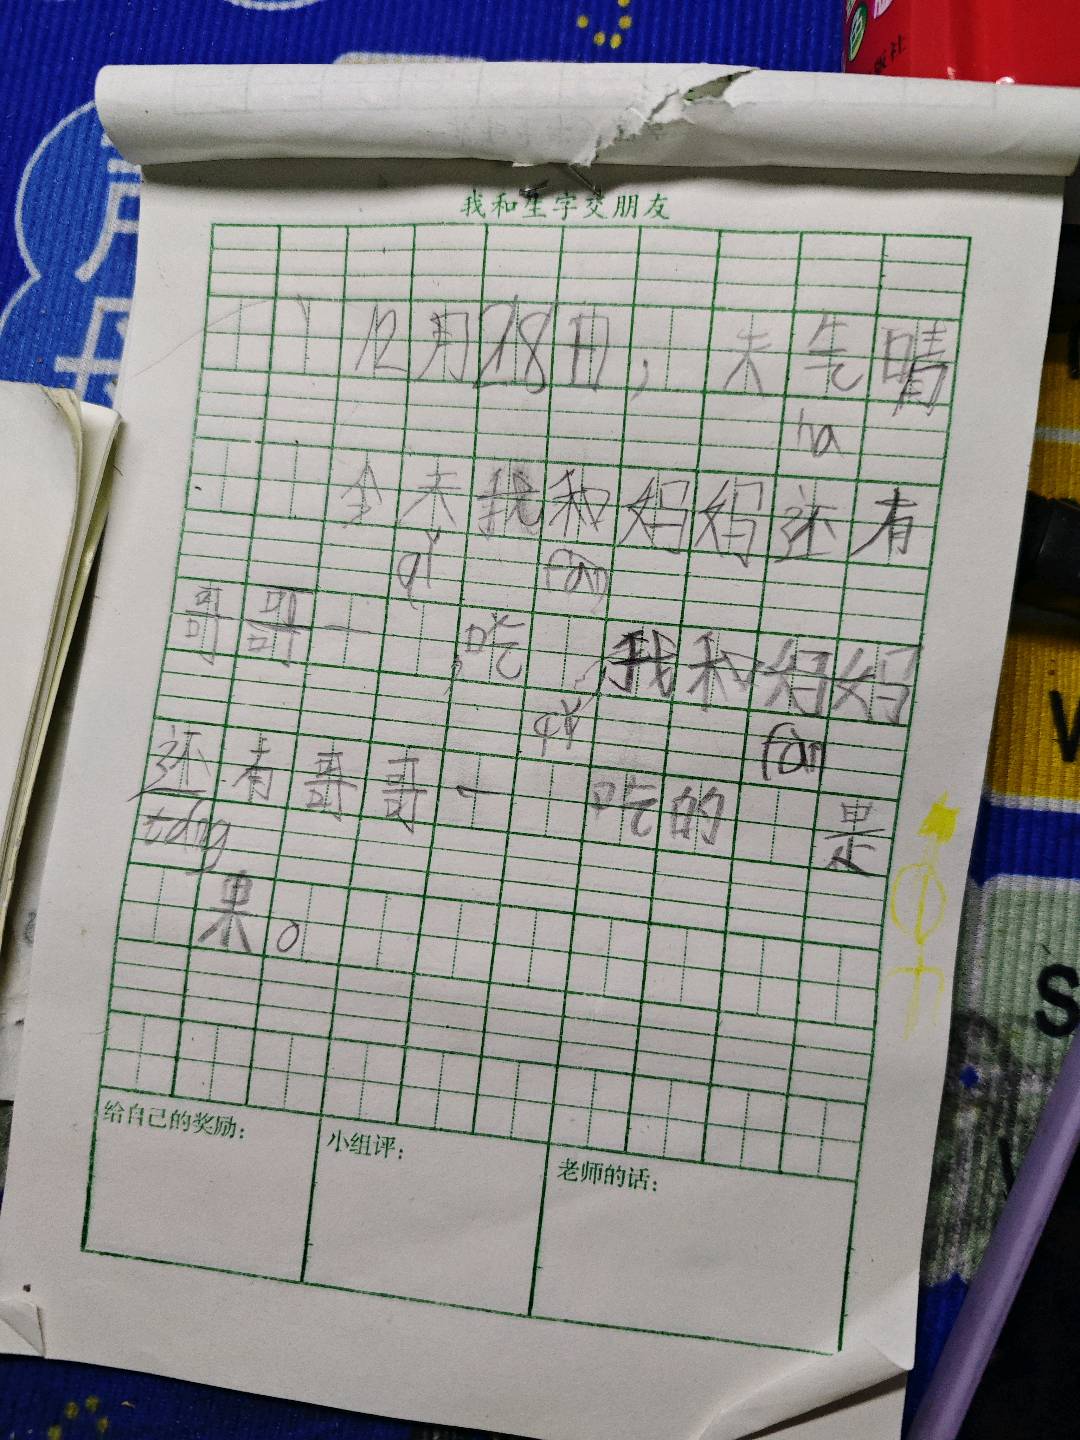 我和生字交朋友
12月28日，夫气晴
ha
全夫我和妈妈还有
qǐ fàn
哥哥一 吃 ，我和妈妈
qǐ fàn
还有哥哥一 吃的 是
táng
果。
给自己的奖励：
小组评：
老师的话：
S